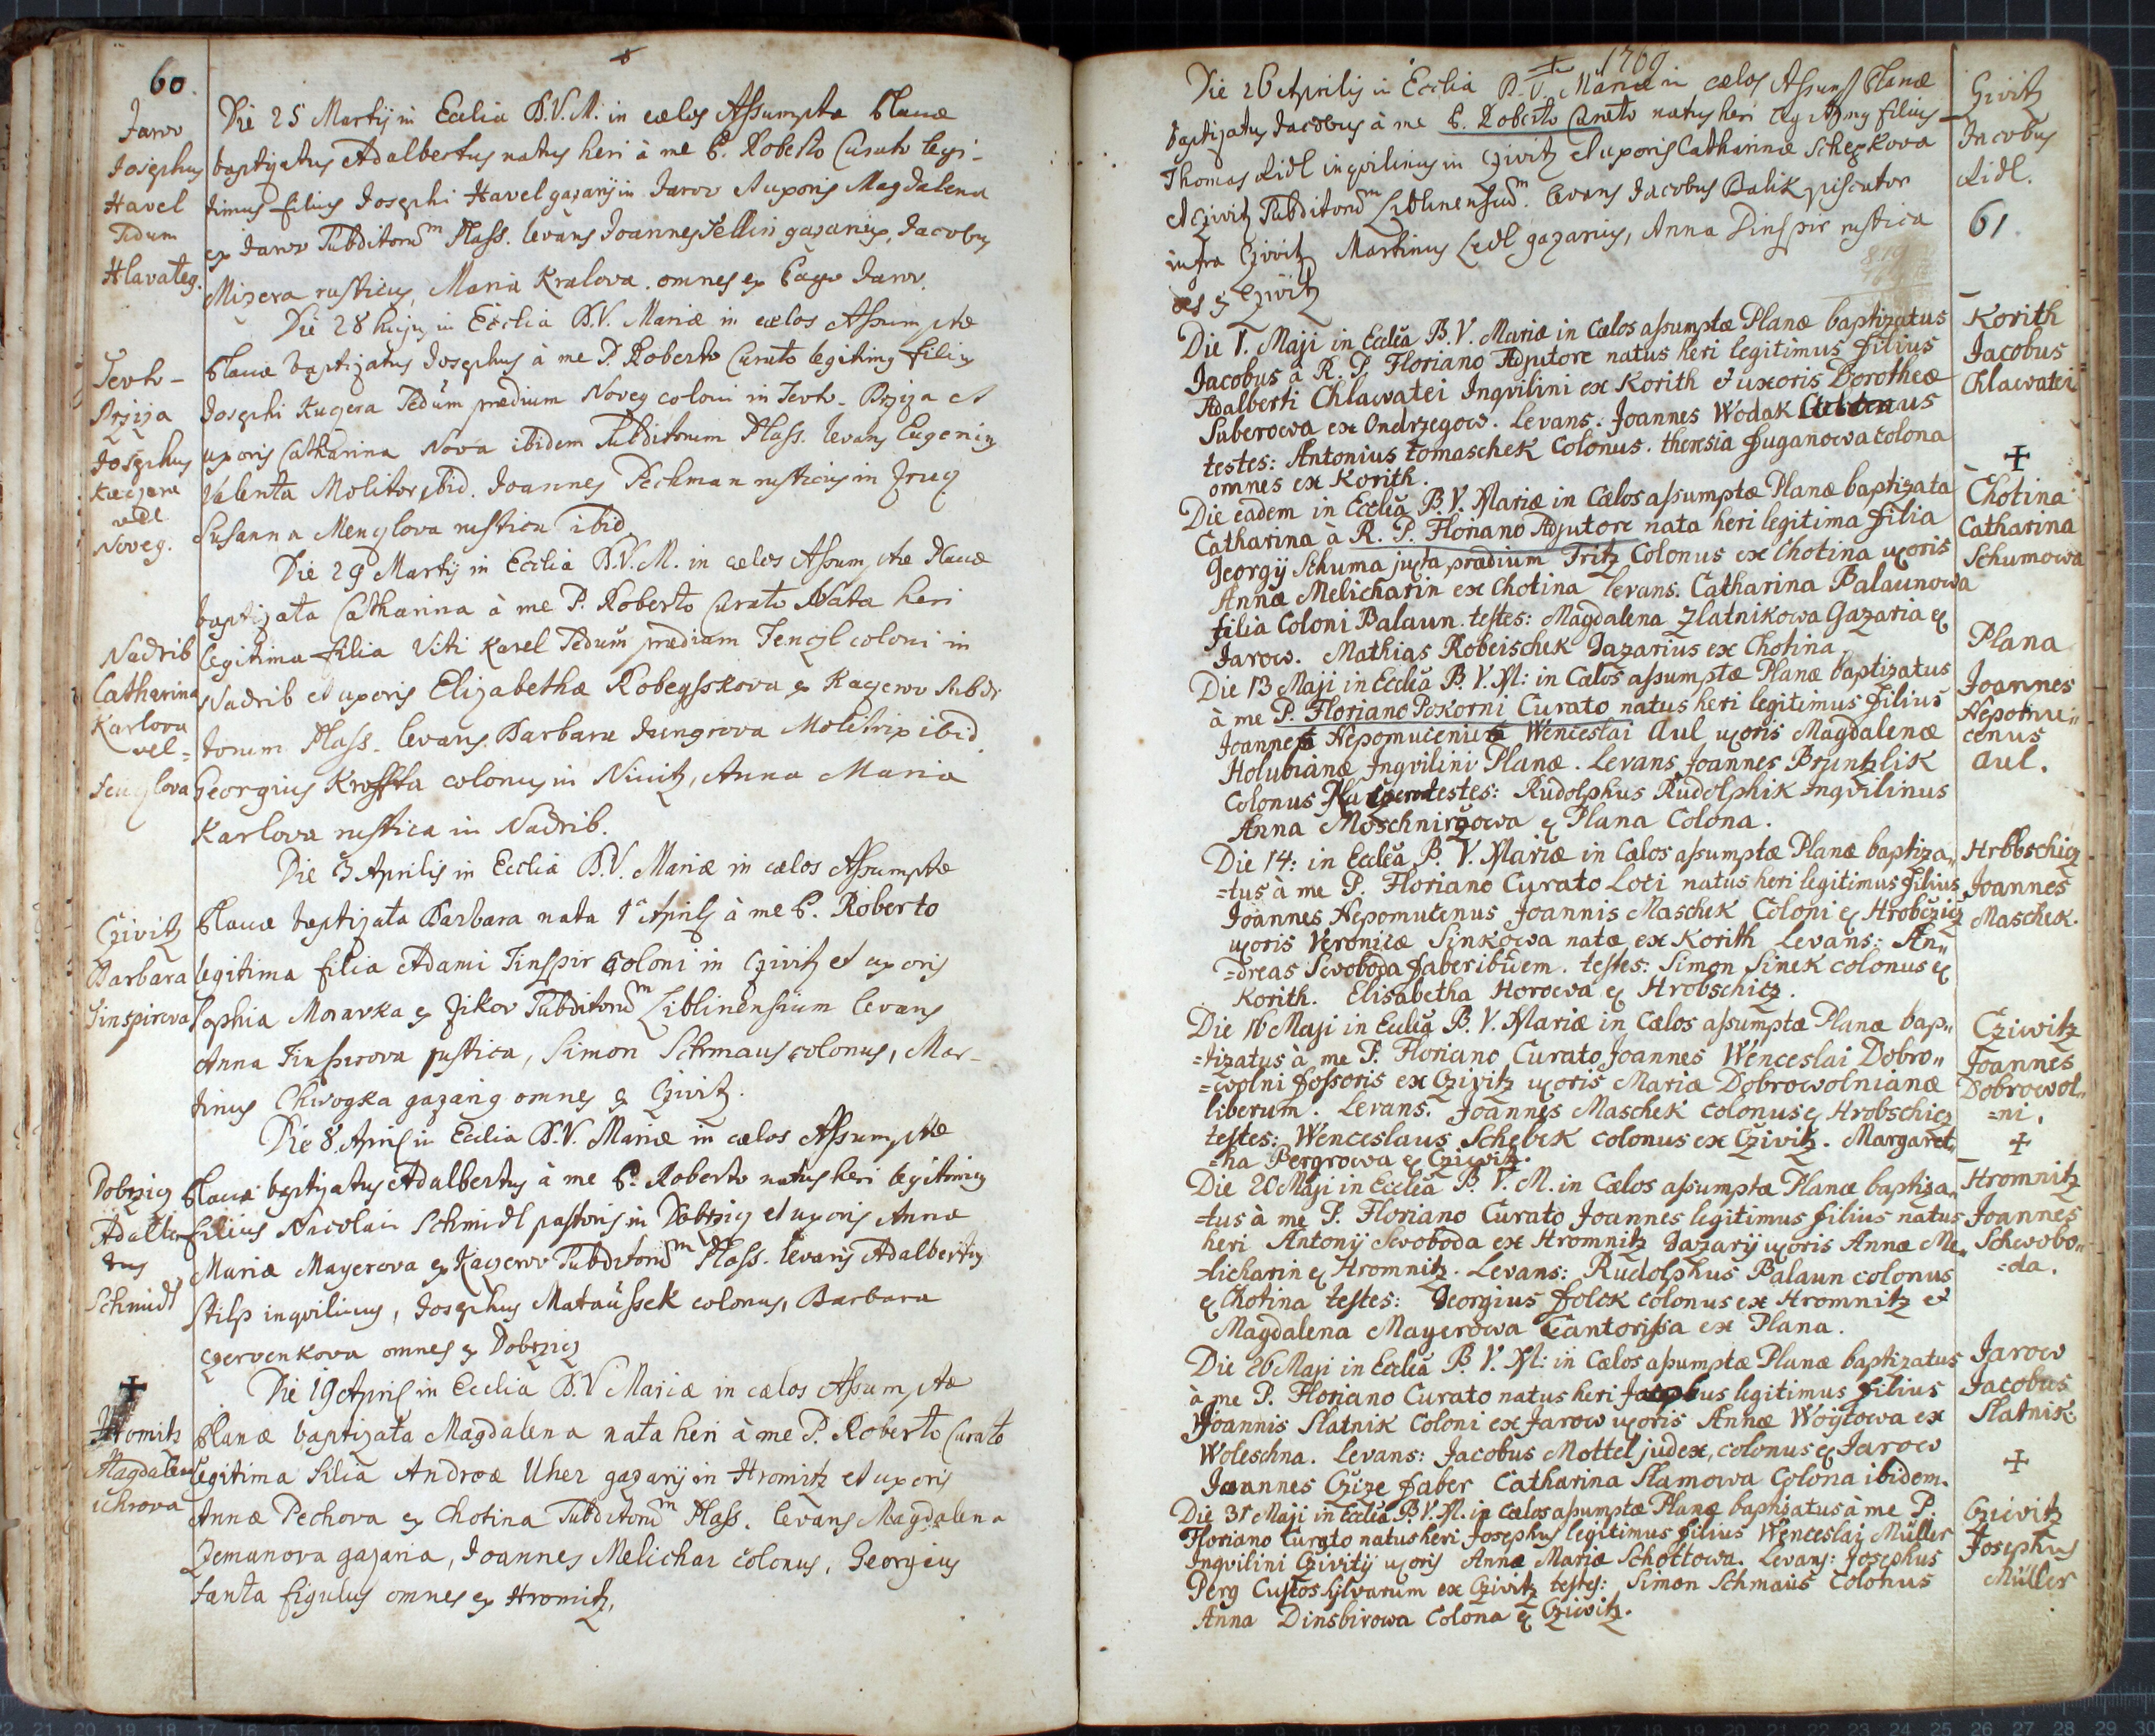 60.
Jarov
Josephus
Havel
Hlavateg.
Die 25 Martij in Ecclia B.V.M. in cælos Assumptæ Planæ
baptizatus Adalbertus natus heri à me P. Roberto Curato legi-
timus filius Josephi Havel gazarij in Jarov et uxoris Magdalena
ex Jarov Subditorum Plass. levans Joannes gazarius, Jacobus
Misera rusticus, Maria Kralova. omnes ex Pago Jarov.
Die 28 hujus in Ecclia B.V. Mariæ in cælos Assumptæ
Planæ baptizatus Josephus à me P. Roberto Curato legitimus filius
Josephi Kuczera prædium Noveg coloni in et
uxoris Catharina Nova ibidem Subditorum Plass. levans Eugenius
Valenta Molitor ibid. Joannes Pechman rusticus in
Susanna Menglova rustica ibid.
Josephus
vel
Noveg.
Die 29 Martij in Ecclia B.V.M. in cælos Assumptæ Planæ
baptizata Catharina à me P. Roberto Curato Nata heri
legitima filia Viti Karel prædium coloni in
Nadrib et uxoris Elizabethæ ex Kazerov Subdi-
torum Plass. levans Barbara Jungrova Molitrix ibid.
Georgius colonus in Anna Maria
Karlova rustica in Nadrib.
Nadrib
Catharina
Karlova
vel =
Die 3 Aprilis in Ecclia B.V. Mariæ in cælos Assumptæ
Planæ baptizata Barbara nata 1 Aprilis à me P. Roberto
legitima filia Adami Tinspir coloni in Czivitz et uxoris
Sophia Moravka ex Zikov Subditorum Liblinensium levans
Anna Tinspirova rustica, Simon Schmaus colonus, Mar-
tinus gazarius omnes ex Czivitz.
Czivitz
Barbara
Tinspirova
Die 8 Aprilis in Ecclia B.V. Mariæ in cælos Assumptæ
Planæ baptizatus Adalbertus à me P. Roberto natus heri legitimus
filius Nicolai Schmidl pastoris in Dobrzicz et uxoris Anna
Mariæ Mayerova ex Kazerov Subditorum Plass. levans Adalbertus
Stilp inqvilinus, Josephus Mataussek colonus, Barbara
Czervenkova omnes ex Dobrzicz
Dobrzicz
Adalber-
tus
Schmidl
Die 19 Aprilis in Ecclia B.V Mariæ in cælos Assumptæ
Planæ baptizata Magdalena nata heri à me P. Roberto Curato
legitima filia Andreæ Uher gazarij in Hromitz et uxoris
Annæ Pechova ex Chotina Subditorum Plass. levans Magdalena
Zemanova gazaria, Joannes Melichar colonus, Georgius
Fanta figulus omnes ex Hromitz.
Hromitz
Magdalena
Uhrova
1769
Die 26 Aprilis in Ecclia B.V. Mariæ in cælos Assumpt Planæ
baptizatus Jacobus à me P. Roberto Curato natus heri legitimus filius
Thomas Lidl inqvilinus in Czivitz et uxoris Catharinæ
ex Czivitz Subditorum Liblinensium. levans Jacobus Balik piscator
infra Czivitz Martinus Ledl gazarius, Anna Dinspir rustica
Czivitz
Czivitz
Jacobus
Lidl.
61
Die 1. Maji in Ecclēa B.V. Mariæ in Cælos assumptæ Planæ baptizatus
Jacobus à R. P. Floriano Adjutore natus heri legitimus filius
Adalberti Chlawatei Inqvilini ex Korith et uxoris Dorotheæ
Suberowa ex Ondrzegow. Levans: Joannes Wodak
testes: Antonius tomaschek Colonus. theresia Huganowa colona
omnes ex Korith.
Korith
Jacobus
Chlawatei
Die eadem in Ecclēa B.V. Mariæ in Cælos assumptæ Planæ baptizata
Catharina à R. P. Floriano Adjutore nata heri legitima filia
Georgij Schuma juxta prædium Fritz Colonus ex Chotina uxoris
Annæ Melicharin ex Chotina levans. Catharina Balaunowa
filia Coloni Balaun. testes: Magdalena Zlatnikowa Gazaria ex
Jarow. Mathias Robeischek Gazarius ex Chotina.
Chotina
Catharina
Schumowa
Die 13 Maji in Ecclēa B. V. M: in Cælos assumptæ Planæ baptizatus
à me P. Floriano Pokorni Curato natus heri legitimus filius
Joannes Nepomucenus Wenceslai Aul uxoris Magdalenæ
Holubianæ Inqvilini Planæ. Levans Joannes Pruntzlik
Colonus testes: Rudolphus Rudolphik Inqvilinus
Anna Moschnirzowa ex Plana Colona.
Plana
Joannes
Nepomu„
cenus
Aul.
Die 14: in Ecclēa B. V. Mariæ in Cælos assumptæ Planæ baptiza„
=tus à me P. Floriano Curato Loci natus heri legitimus filius
Joannes Nepomucenus Joannis Maschek Coloni ex Hrobczicz
uxoris Veronicæ Sinkowa natæ ex Korith Levans: An„
=dreas Swoboda faber ibidem. testes: Simon Sinek colonus ex
Korith. Elisabetha Horowa ex Hrobschicz.
Hrbbschicz
Joannes
Maschek.
Die 16 Maji in Ecclēa B. V. Mariæ in Cælos assumptæ Planæ bap„
=tizatus à me P. Floriano Curato Joannes Wenceslai Dobro„
=wolni fossoris ex Czivitz uxoris Mariæ Dobrowolnianæ
liberum. Levans. Joannes Maschek colonus ex Hrobschicz
testes: Wenceslaus Schebek colonus ex Czivitz. Margaret„
=ha Pergrowa ex Cziwitz.
Cziwitz
Joannes
Dobrowol„
=ni.
Die 20 Maji in Ecclēa B. V. M. in Cælos assumptæ Planæ baptiza„
=tus à me P. Floriano Curato Joannes legitimus filius natus
heri Antonij Swoboda ex Hromnitz Gazarij uxoris Annæ Me„
=licharin ex Hromnitz. Levans: Rudolphus Balaun colonus
ex Chotina testes: Georgius Folck colonus ex Hromnitz et
Magdalena Mayerowa Cantorissa ex Plana.
Hromnitz
Joannes
Schwobo„
=da.
Die 26 Maji in Ecclēa B. V. M: in Cælos assumptæ Planæ baptizatus
à me P. Floriano Curato natus heri Jacobus legitimus filius
Joannis Slatnik Coloni ex Jarow uxoris Annæ Woijtowa ex
Woleschna. Levans: Jacobus Mottel judex, colonus ex Jarow
Joannes Czize faber Catharina Slamowa Colona ibidem.
Jarow
Jacobus
Slatnik.
Die 31 Maji in Ecclēa B.V.M. in cælos assumptæ Planæ baptisatus à me P.
Floriano Curato natus heri Josephus legitimus filius Wenceslai Müller
Inqvilini Czivitij uxoris Annæ Mariæ Schottowa. Levans: Josephus
Perg Custos sylvarum ex Czivitz testes: Simon Schmaus Colonus
Anna Dinsbirowa Colona ex Cziwitz.
Cziwitz
Josephus
Müller